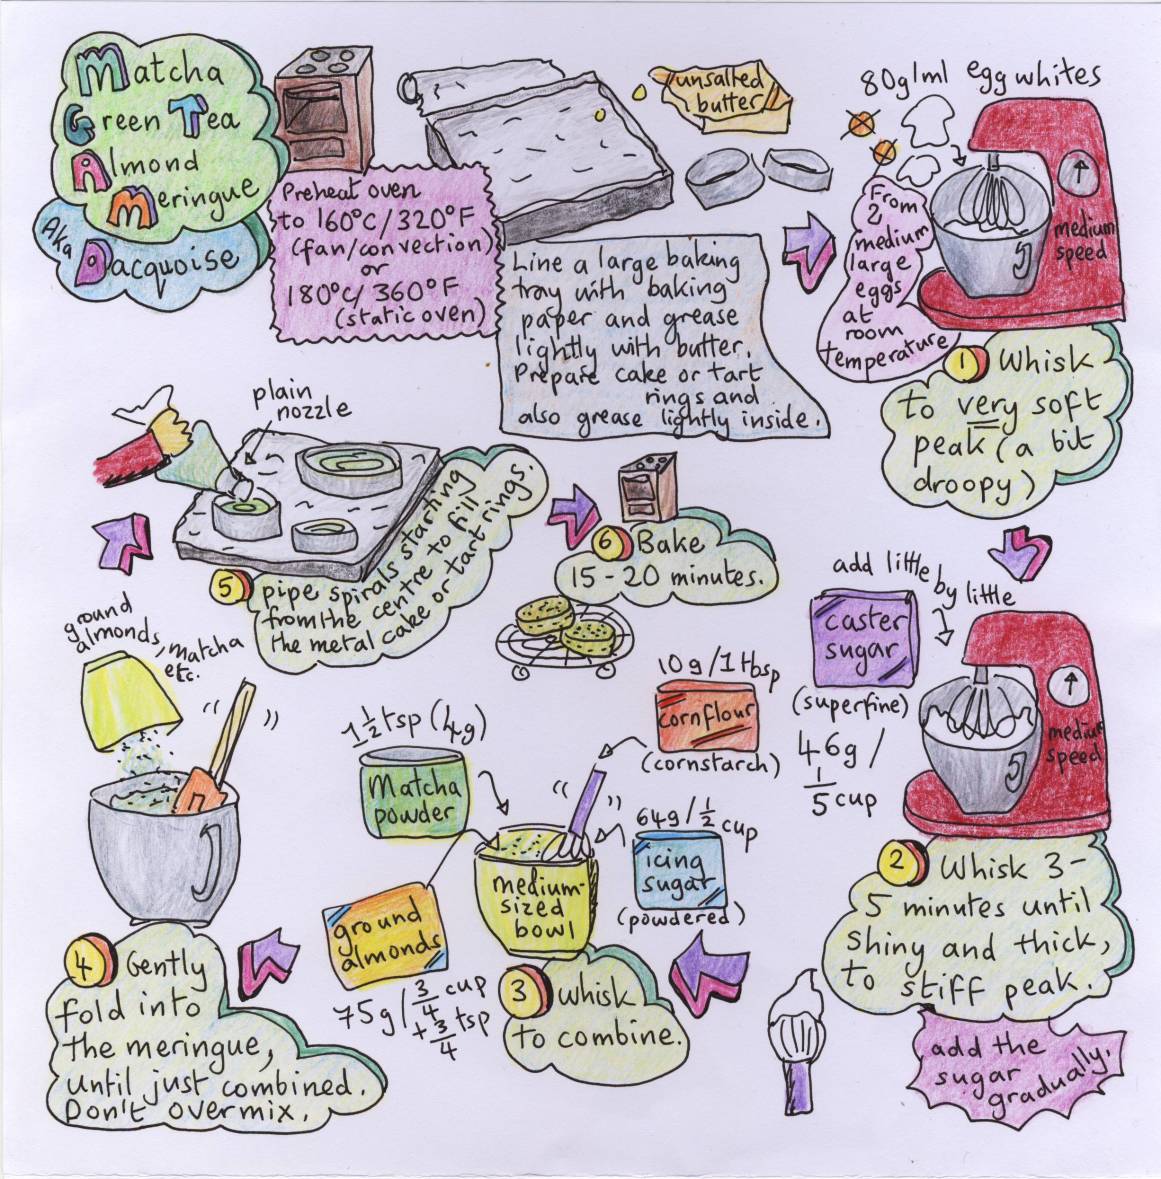 Matcha
Green Tea
Almond
Meringue
Aka
Dacquoise
Preheat oven
to 160°C/320°F
(fan/convection)
or
180°C/360°F
(static oven)
unsalted
butter
Line a large baking
tray with baking
paper and grease
lightly with butter.
Prepare cake or tart
rings and
also grease lightly inside.
80g/ml egg whites
From
2
medium
large
eggs
at
room
temperature
medium
speed
1 Whisk
to very soft
peak (a bit
droopy)
add little by little
caster
sugar
(superfine)
46g/
1/5 cup
medium
speed
2 Whisk 3-
5 minutes until
shiny and thick,
to stiff peak.
add the
sugar
gradually.
10g/1tbsp
cornflour
(cornstarch)
1 1/2 tsp (4g)
Matcha
powder
64g/1/2 cup
icing
sugar
(powdered)
medium-
sized
bowl
ground
almonds
75g/3/4 cup
+3/4 tsp
3 whisk
to combine.
ground
almonds, matcha
etc.
4 Gently
fold into
the meringue,
until just combined.
Don't overmix.
plain
nozzle
5 pipe spirals starting
from the centre to fill
the metal cake or tart rings.
6 Bake
15-20 minutes.